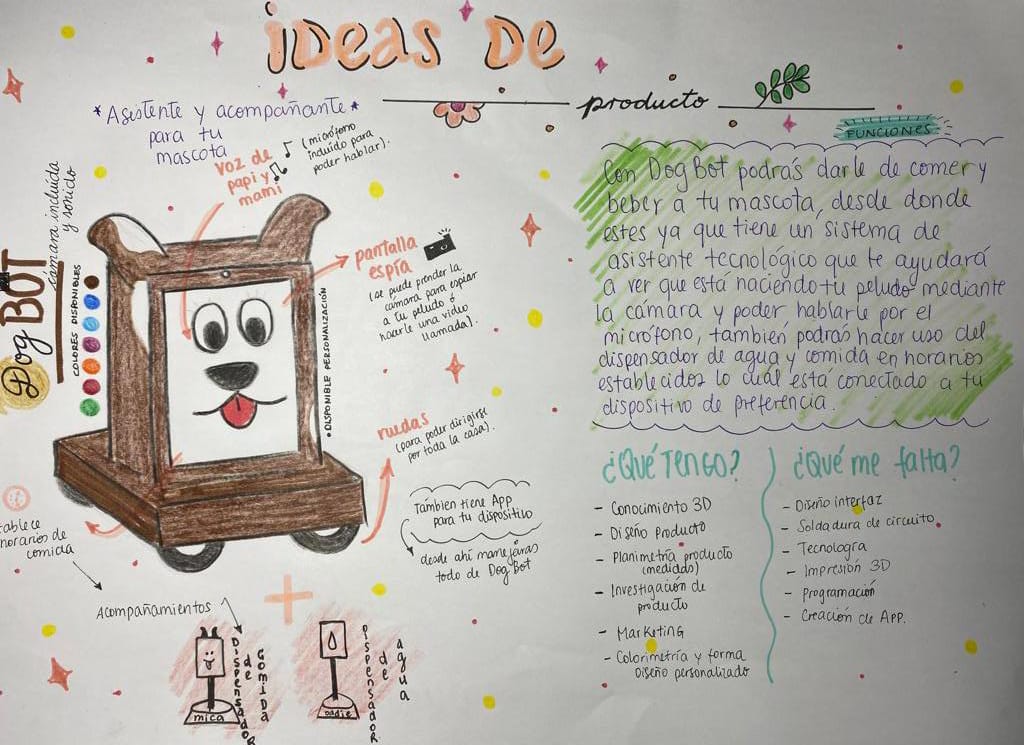 ideas de
producto
*Asistente y acompañante*
para tu
mascota
Dog BOT
cámara incluida
y sonido
COLORES DISPONIBLES
voz de
papi y
mami
(micrófono
incluido para
poder hablar).
pantalla
espía
(se puede prender la
cámara para espiar
a tu peludo ó
hacerle una video
llamada).
• DISPONIBLE PERSONALIZACIÓN
ruedas
(para poder dirigirse
por toda la casa).
También tiene App
para tu dispositivo
desde ahí manejarás
todo de Dog Bot
tablece
horarios de
comida
Acompañamientos
mica
Dispensador
de
comida
Dispensador
de
agua
FUNCIONES
Con Dog Bot podrás darle de comer y
beber a tu mascota, desde donde
estes ya que tiene un sistema de
asistente tecnológico que te ayudará
a ver que está haciendo tu peludo mediante
la cámara y poder hablarle por el
micrófono, también podrás hacer uso del
dispensador de agua y comida en horarios
establecidos lo cual está conectado a tu
dispositivo de preferencia.
¿Qué Tengo?
- Conocimiento 3D
- Diseño Producto
- Planimetría producto
(medidas)
- Investigación de
producto
- Marketing
- Colorimetría y forma
Diseño personalizado
¿Qué me falta?
- Diseño interfaz
- Soldadura de circuito.
- Tecnología
- Impresión 3D
- Programación
- Creación de App.